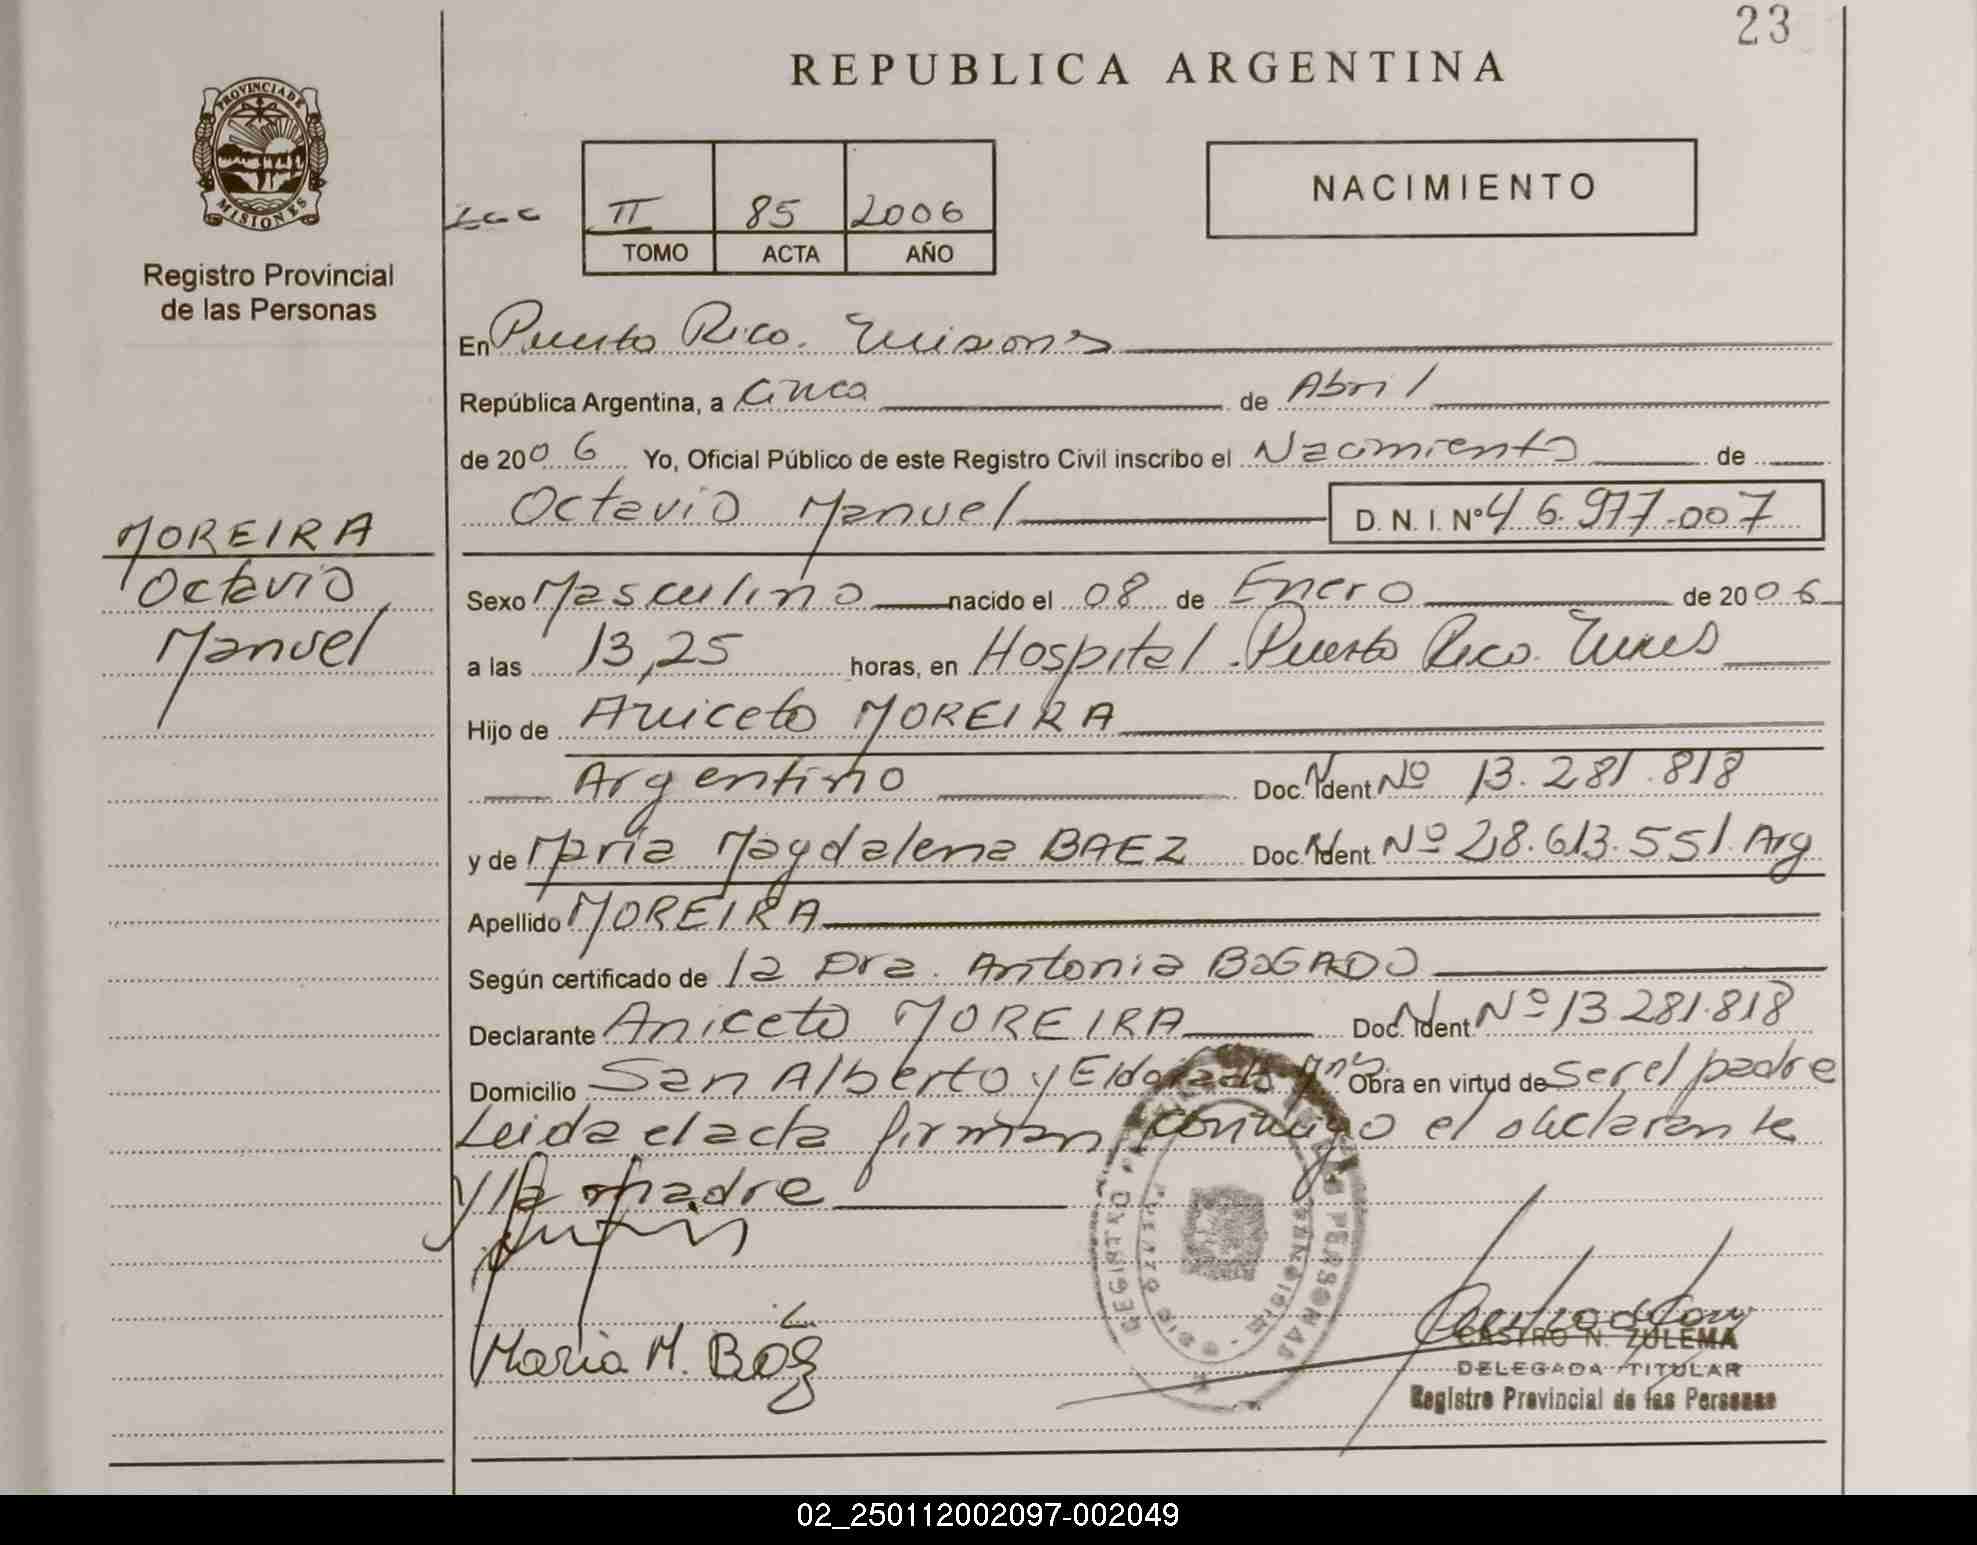 23
REPUBLICA ARGENTINA
PROVINCIA DE
MISIONES
Registro Provincial
de las Personas
II 85 2006
TOMO ACTA AÑO
NACIMIENTO
En Puerto Rico. Misiones
República Argentina, a Cinco de Abril
de 2006 Yo, Oficial Público de este Registro Civil inscribo el Nacimiento de
Octavio Manuel D. N. I. Nº 46.977.007
MOREIRA
Octavio
Manuel
Sexo Masculino nacido el 08 de Enero de 2006
a las 13,25 horas, en Hospital. Puerto Rico. Mnes
Hijo de Aniceto MOREIRA
Argentino Doc. N. Ident Nº 13.281.818
y de María Magdalena BAEZ Doc. N. Ident. Nº 28.613.551 Arg
Apellido MOREIRA
Según certificado de la Dra. Antonia BOGADO
Declarante Aniceto MOREIRA Doc. N. Ident. Nº 13.281.818
Domicilio San Alberto y Eldorado Mnes Obra en virtud de ser el padre
Leida el acta firman conmigo el declarante
y la madre
Maria M. Báez
REGISTRO PERSONAS
PUERTO RICO MISIONES
CASTRO N. ZULEMA
DELEGADA TITULAR
Registro Provincial de las Personas
02_250112002097-002049